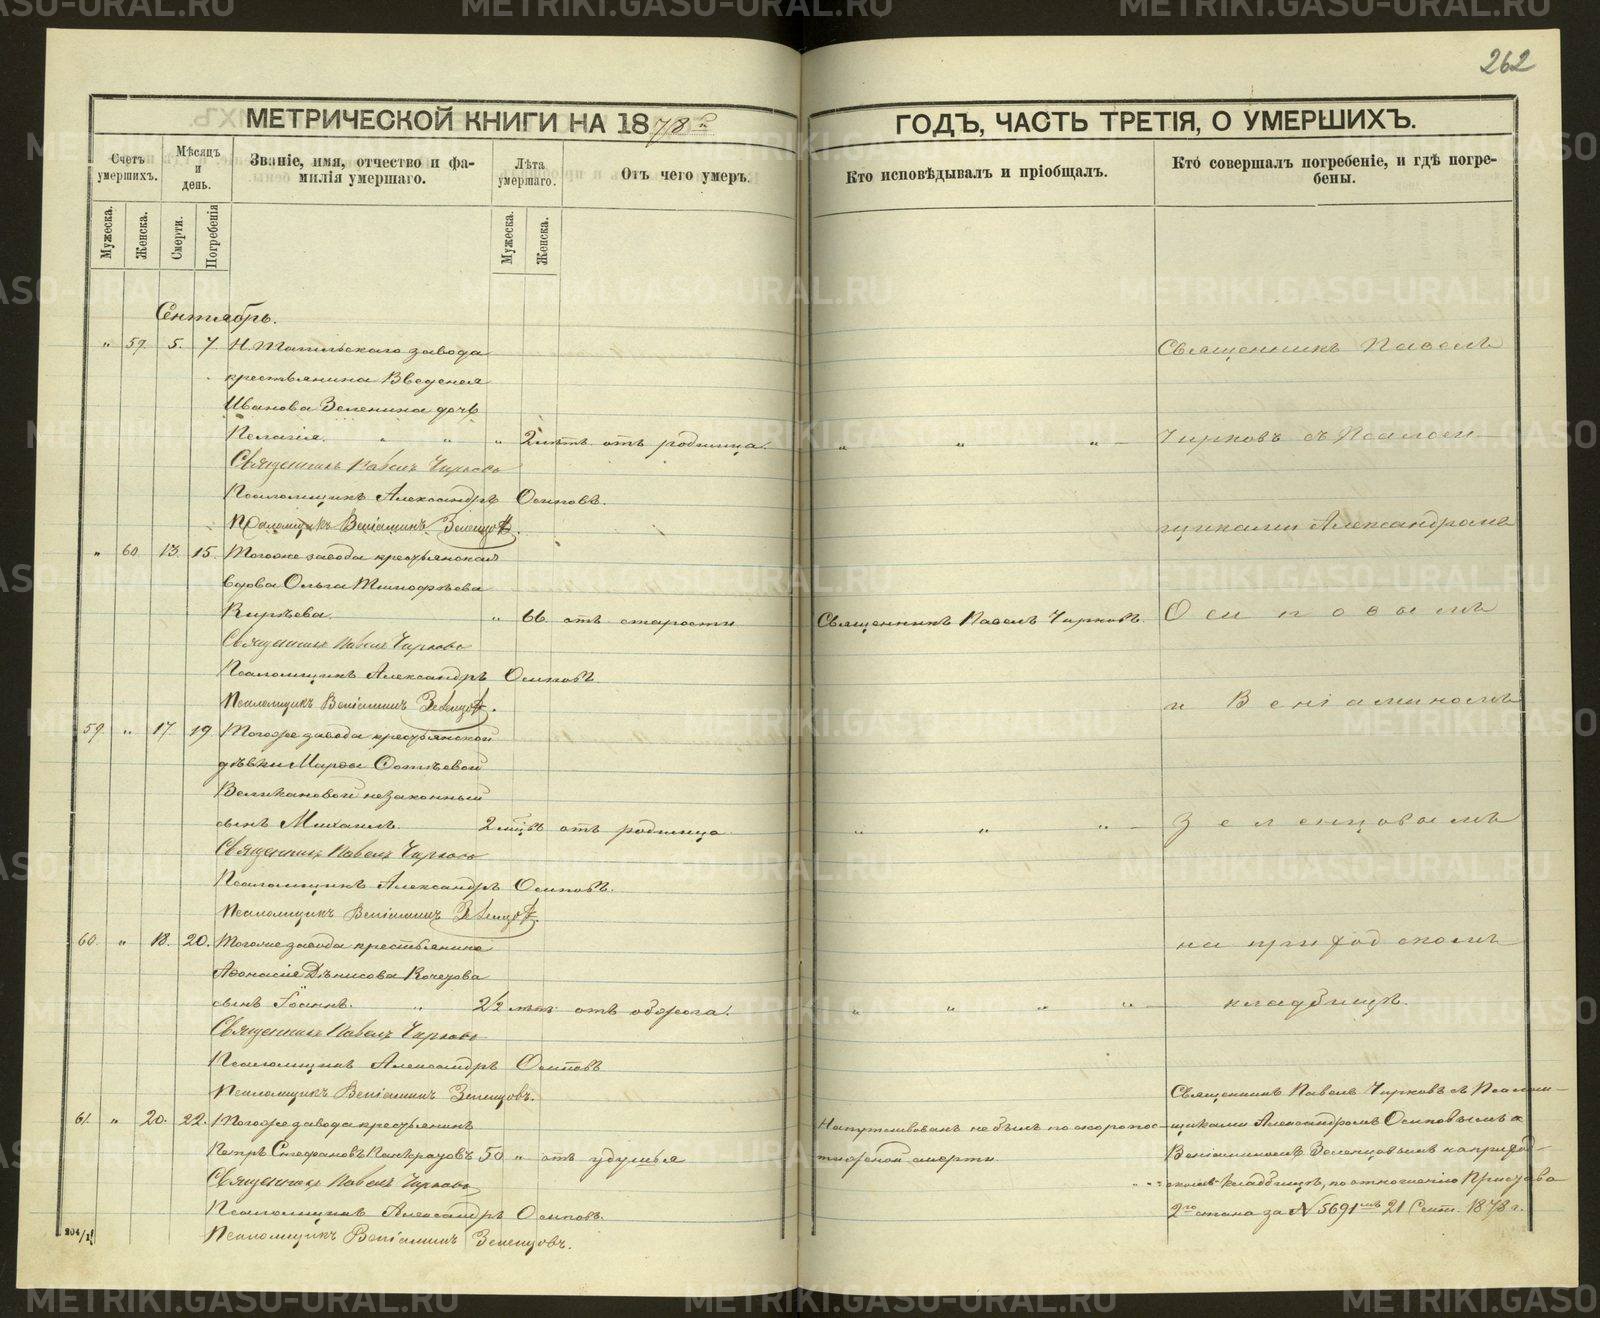 262
МЕТРИЧЕСКОЙ КНИГИ НА 1878й
ГОДЪ, ЧАСТЬ ТРЕТІЯ, О УМЕРШИХЪ.
Счетъ умершихъ.
Мѣсяцъ и день.
Званіе, имя, отчество и фамилія умершаго.
Лѣта умершаго.
Отъ чего умеръ.
Кто исповѣдывалъ и пріобщалъ.
Кто совершалъ погребеніе, и гдѣ погребены.
Мужеска.
Женска.
Смерти.
Погребенія
Мужеска.
Женска.
Сентябрь.
" 59. 5. 7. Н. Тагильскаго завода
крестьянина
Иванова Зеленина дочь
Пелагія. " " " 2 лѣтъ отъ родимца. " " "
Священникъ Павелъ Чирковъ
Псаломщикъ Александръ Осиповъ.
Псаломщикъ Веніаминъ Зеленцовъ.
" 60. 13. 15. Тогоже завода крестьянская
вдова Ольга Тимофѣева
Кирѣева. " 66. отъ старости Священникъ Павелъ Чирковъ.
Священникъ Павелъ Чирковъ
Псаломщикъ Александръ Осиповъ.
Псаломщикъ Веніаминъ Зеленцовъ.
59. " 17. 19. Тогоже завода крестьянской
дѣвки Марѳы
Великановой незаконный
сынъ Михаилъ. 2 мцвъ отъ родимца " " "
Священникъ Павелъ Чирковъ
Псаломщикъ Александръ Осиповъ.
Псаломщикъ Веніаминъ Зеленцовъ.
60. " 18. 20. Тогоже завода крестьянина
Аѳанасія Дѣнисова
сынъ Іоаннъ. " 2½ лѣтъ отъ " " "
Священникъ Павелъ Чирковъ
Псаломщикъ Александръ Осиповъ
Псаломщикъ Веніаминъ Зеленцовъ.
61. " 20. 22. Тогоже завода крестьянинъ
Петръ Стефановъ 50 " отъ удушья
Священникъ Павелъ Чирковъ
Псаломщикъ Александръ Осиповъ.
Псаломщикъ Веніаминъ Зеленцовъ.
Напутствованъ не былъ по скоропос-
тижной смерти.
Священникъ Павелъ
Чирковъ съ Псаломщи-
щиками Александромъ
Осиповымъ
и Веніаминомъ
Зеленцовымъ
на приходскомъ
кладбищѣ.
Священникъ Павелъ Чирковъ съ Псалом-
щиками Александромъ Осиповымъ и
Веніаминомъ Зеленцовымъ на приход-
скомъ кладбищѣ, по отношенію Пристава
2го стана за № 5691мъ 21 Сент. 1878 г.
METRIKI.GASO-URAL.RU